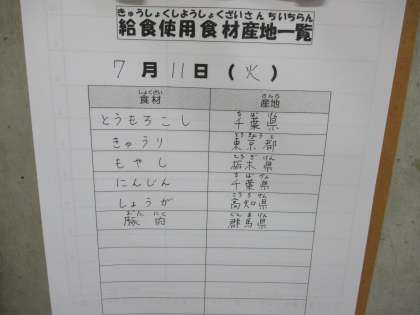 きゅうしょくしようしょくざいさんちいちらん
給食使用食材産地一覧
7月11日(火)
しょくざい さんち
食材 産地
ちばけん
とうもろこし 千葉県
とうきょうと
きゅうり 東京都
とちぎけん
もやし 栃木県
ちばけん
にんじん 千葉県
こうちけん
しょうが 高知県
ぶたにく ぐんまけん
豚肉 群馬県